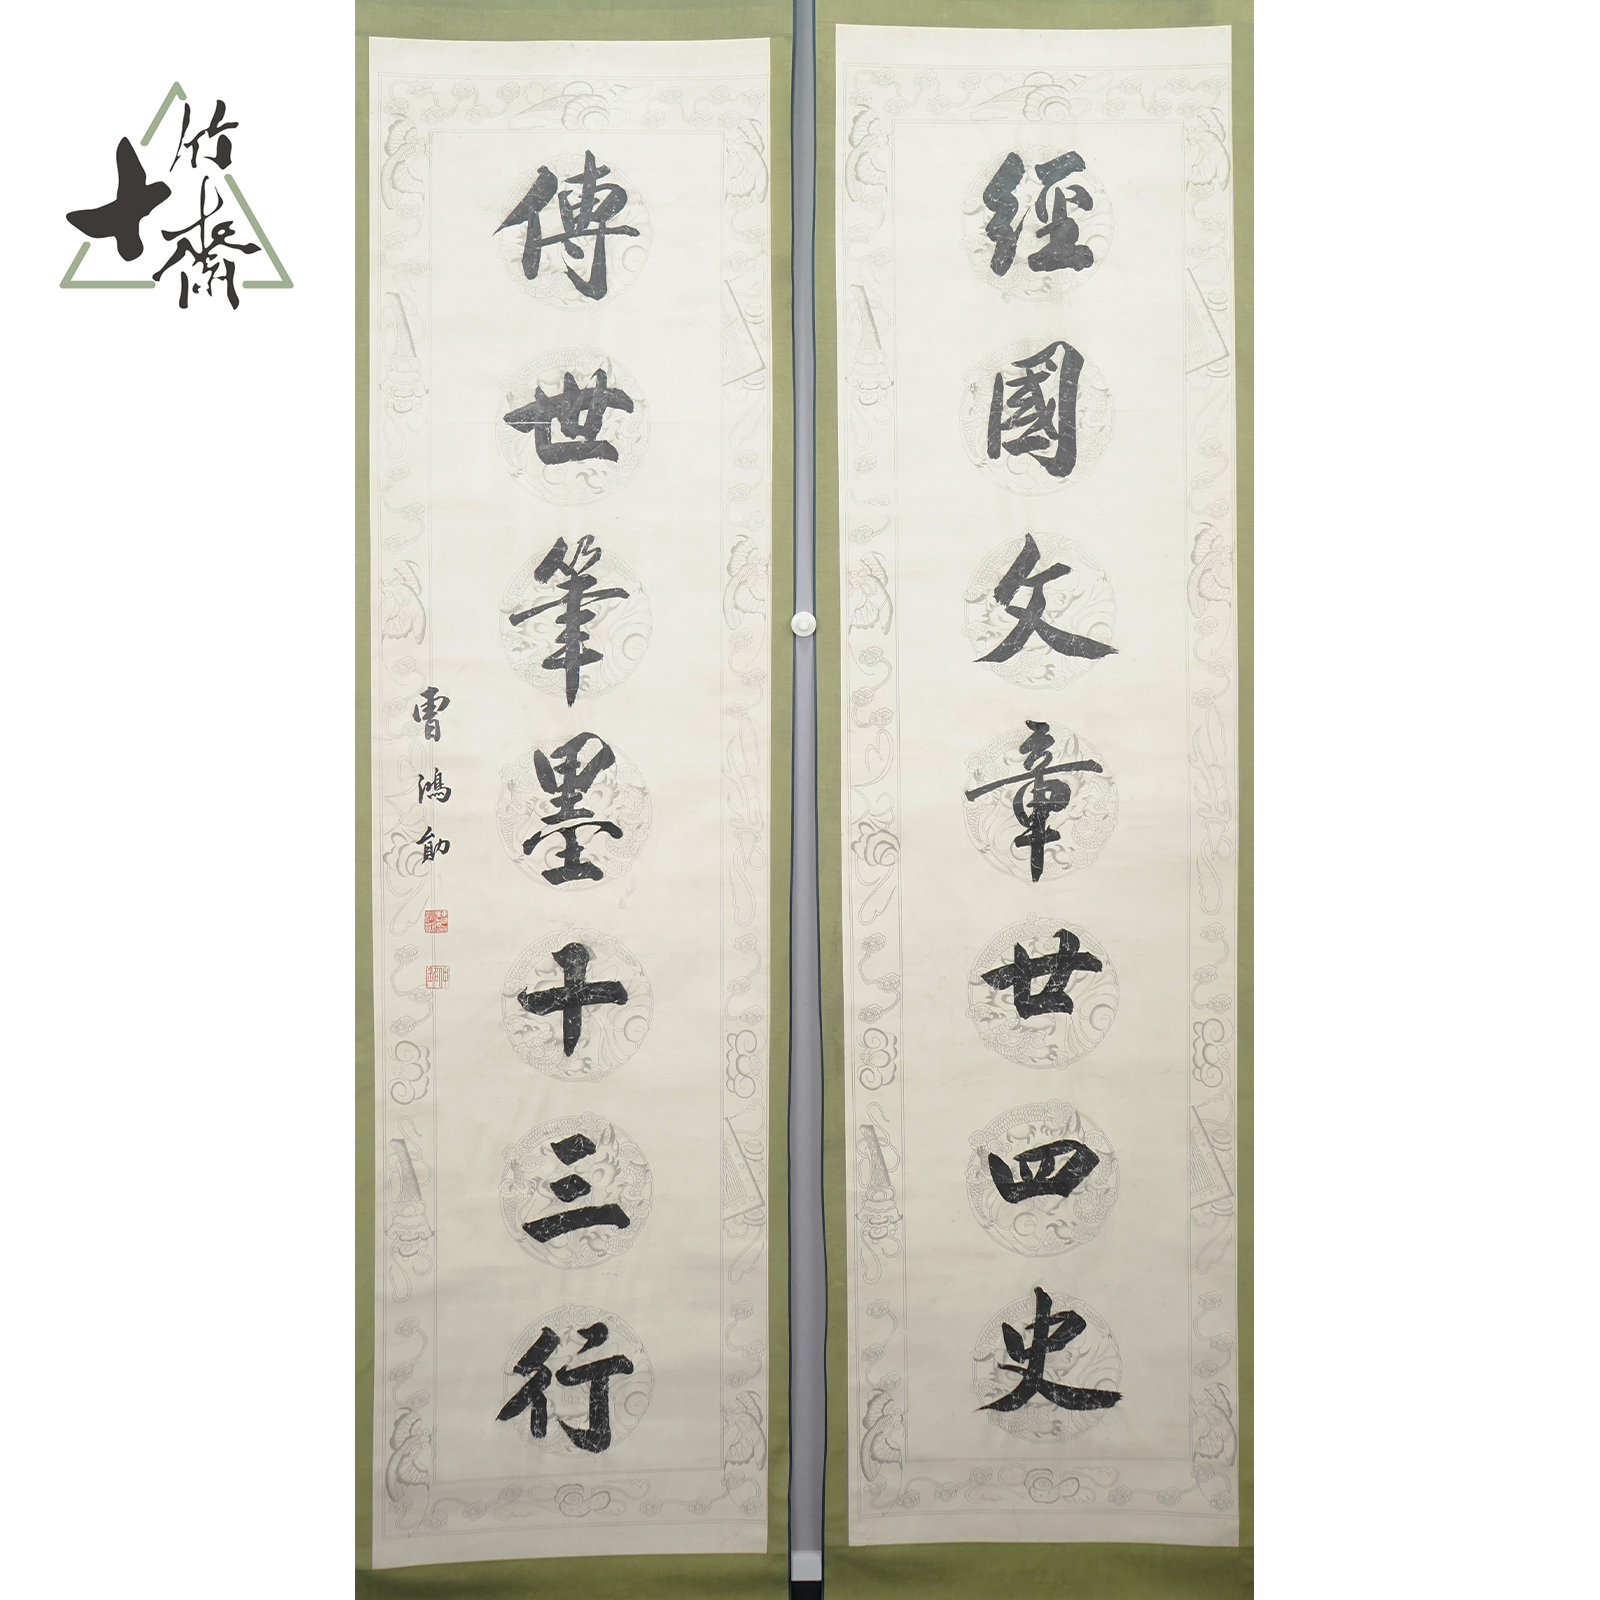 經國文章廿四史
傳世筆墨十三行
曹鴻勛
十竹齋